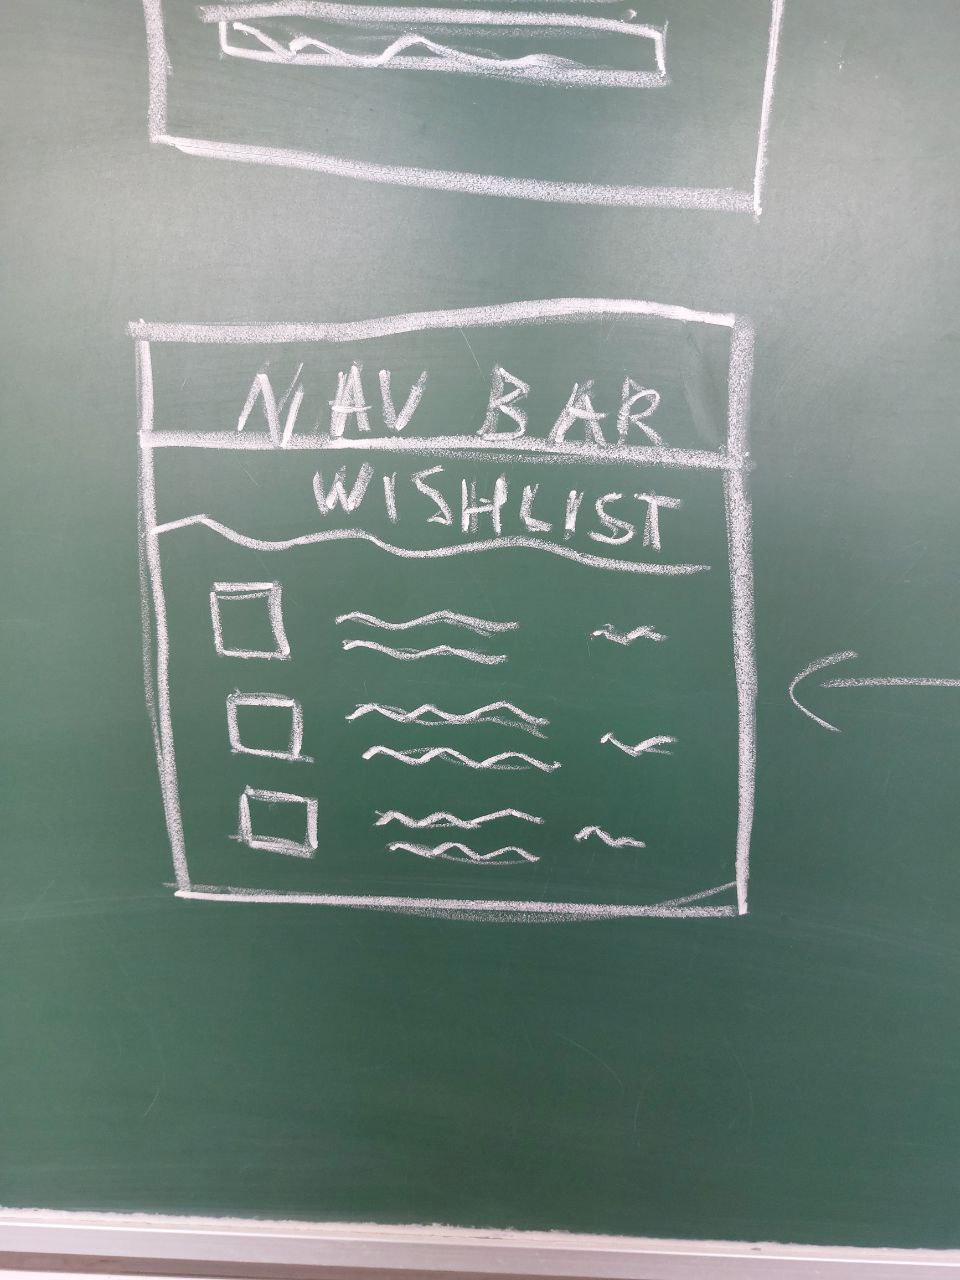 NAV BAR
WISHLIST